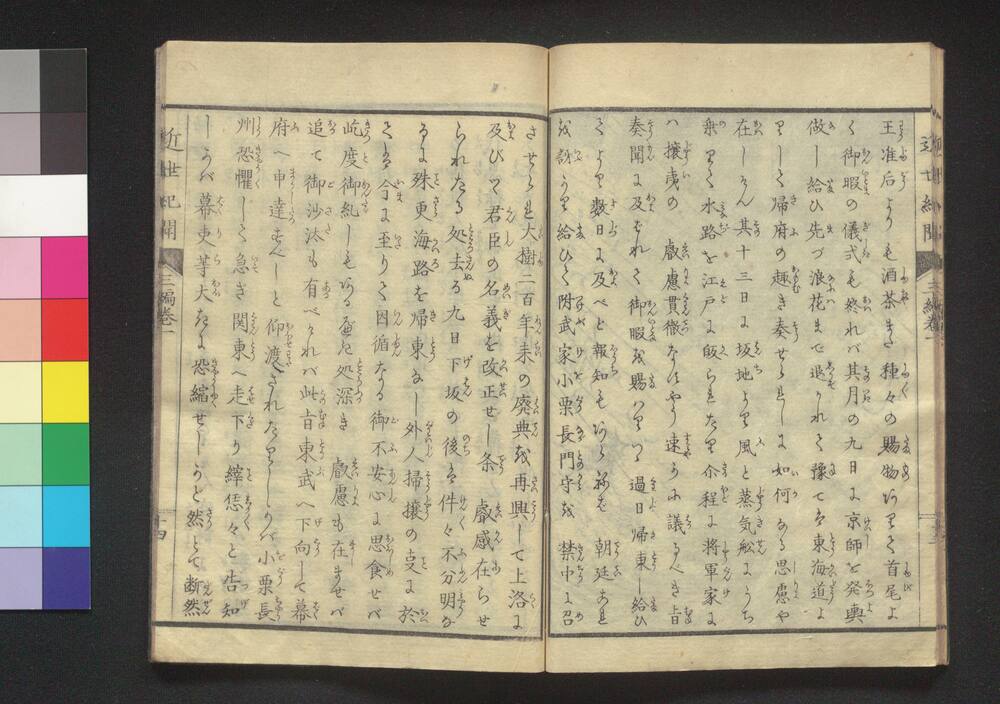 王准后よりも酒茶また種々の賜物ありて首尾よ
く御暇の儀式も終れバ其月の九日に京師を発輿
做し給ひ先づ浪花まで退かれて豫てハ東海道よ
りして帰府の趣き奏せられしに如何なる思慮や
在しけん其十三日に坂地より風と蒸気舩にうち
乗りて水路を江戸に皈られたり介程に将軍家に
ハ攘夷の 叡慮貫徹なすやう速かに議すべき旨
奏聞に及ばれて御暇を賜ハりつ過日帰東 給ひ
てより数日に及べど報知もあらねを 朝廷これ
を訝かり給ひて附武家小栗長門守を 禁中に召
させられ大樹二百年来の廃典を再興して上洛に
及びて君臣の名義を改正せし条 叡感在らせ
られたる処去る九日下坂の後ハ件々不分明な
るに殊更海路を帰東なし外人掃攘の㕝に於
てハ今に至りて因循なる御不安心に思食せバ
屹度御糺しもあるべき処深き 叡慮も在ませバ
追て御沙汰も有べけれバ此旨東武へ下向して幕
府へ申達すべしと仰渡されたりしかバ小栗長
州恐懼して急ぎ関東へ走下り縡恁々と告知
しかバ幕吏等大きに恐縮せしかど然とて断然
近世紀聞 三編巻一
近世紀聞 三編巻一 十四